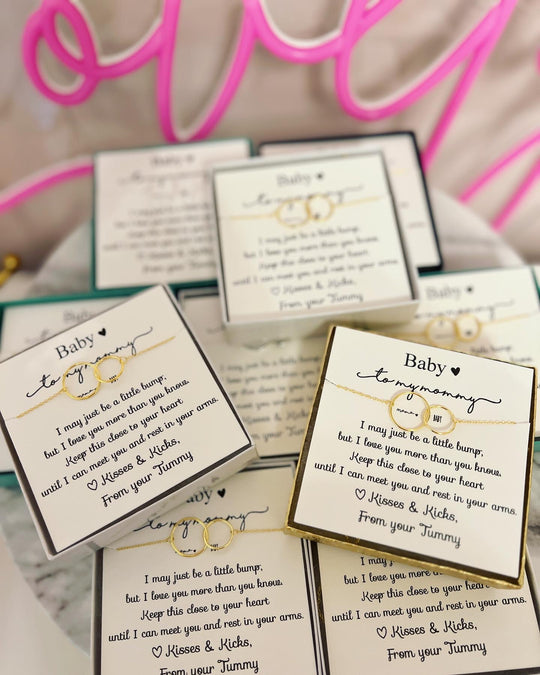 Baby ♥
to my mommy
I may just be a little bump,
but I love you more than you know.
Keep this close to your heart
until I can meet you and rest in your arms.
♡ Kisses & Kicks,
From your Tummy
Baby ♥
to my mommy
I may just be a little bump,
but I love you more than you know.
Keep this close to your heart
until I can meet you and rest in your arms.
♡ Kisses & Kicks,
From your Tummy
Baby ♥
to my mommy
mama
I may just be a little bump,
but I love you more than you know.
Keep this close to your heart
until I can meet you and rest in your arms.
♡ Kisses & Kicks,
From your Tummy
Baby ♥
to my mommy
I may just be a little bump,
but I love you more than you know.
Keep this close to your heart
until I can meet you and rest in your arms.
♡ Kisses & Kicks,
From your Tummy
I may just be a
but I love you more than you know.
Keep this close to your heart
until I can meet you and rest in your arms.
♡ Kisses & Kicks,
From your Tummy